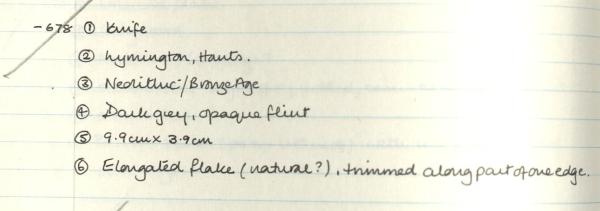 -678 ① Knife
② Lymington, Hants.
③ Neolithic/Bronze Age
④ Dark grey, opaque flint
⑤ 9.9cm x 3.9cm
⑥ Elongated flake (natural?), trimmed along part of one edge.